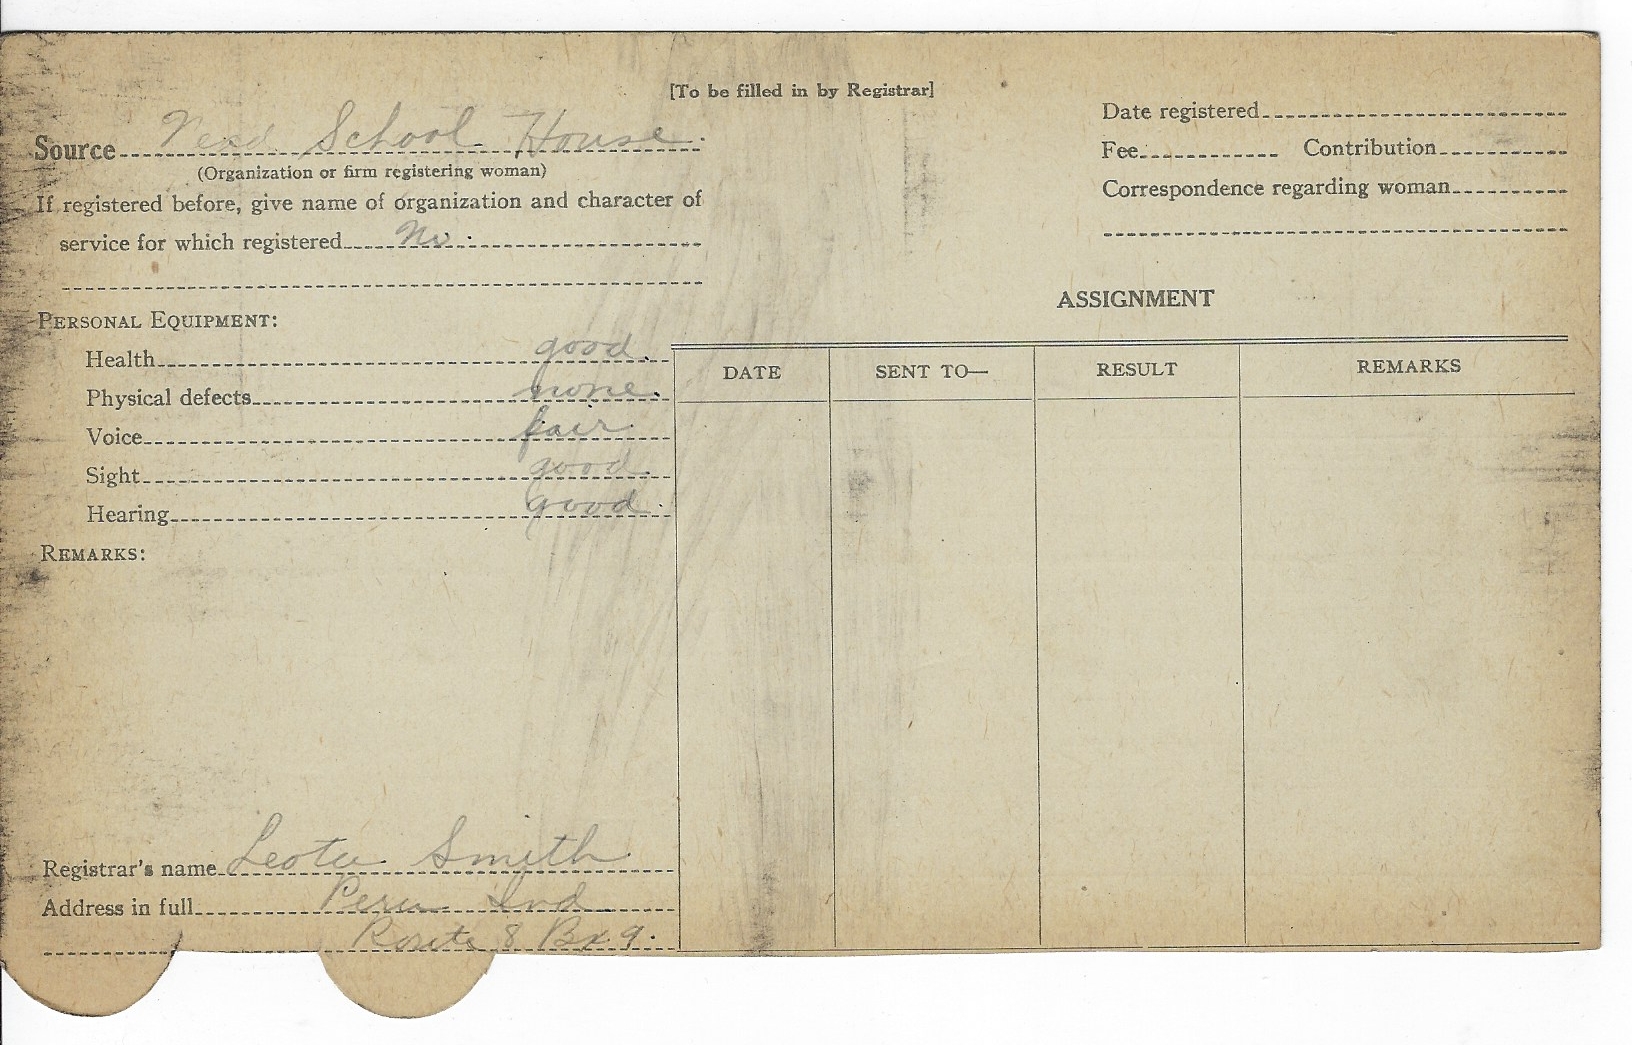 [To be filled in by Registrar]
Source School House
(Organization or firm registering woman)
If registered before, give name of organization and character of
service for which registered No.
PERSONAL EQUIPMENT:
Health good.
Physical defects none.
Voice fair.
Sight good
Hearing good.
REMARKS:
Registrar's name Leota Smith
Address in full Peru Ind
Route 8 Bx 9.
Date registered
Fee Contribution
Correspondence regarding woman
ASSIGNMENT
DATE SENT TO— RESULT REMARKS